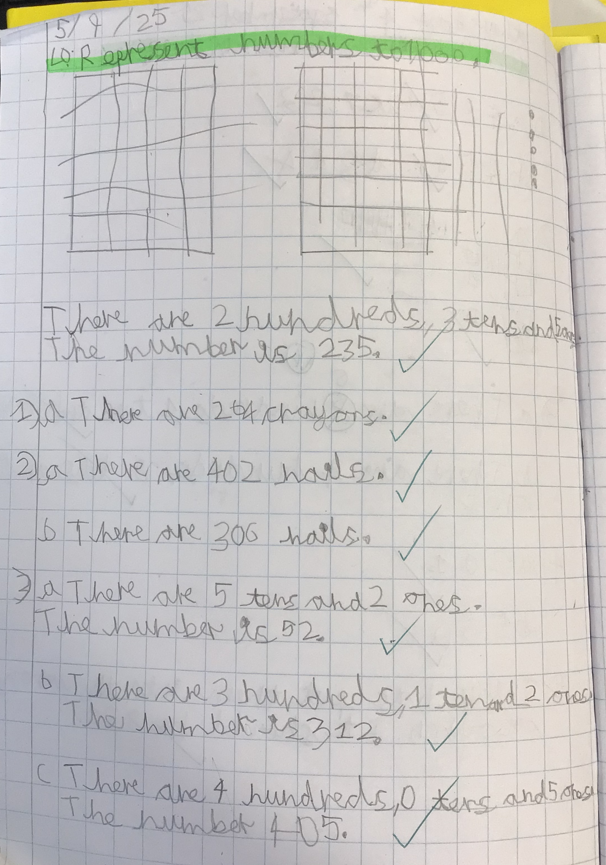 5/9/25
LO: Represent numbers to 1000.
There are 2 hundreds, 3 tens and 5 ones.
The number is 235.
1) a There are 264 crayons.
2) a There are 402 nails.
b There are 306 nails.
3) a There are 5 tens and 2 ones.
The number is 52.
b There are 3 hundreds, 1 ten and 2 ones
The number is 312.
c There are 4 hundreds, 0 tens and 5 ones
The number 405.